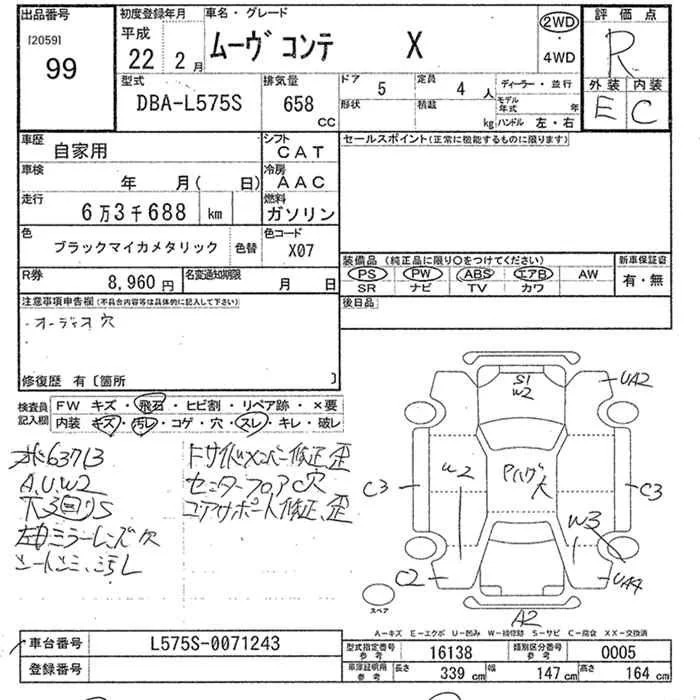 出品番号
[2059]
99
初度登録年月
平成
22 2月
車名・グレード
ムーヴ コンテ X
2WD
・
4WD
評価点
R
外装 内装
E C
型式
DBA-L575S
排気量
658 CC
ドア 5
形状
定員 4 人
積載 kg
ディーラー・並行
モデル年式 年
ハンドル 左・右
車歴
自家用
シフト
CAT
セールスポイント(正常に機能するものに限ります)
車検
年 月( 日)
冷房
AAC
走行
6万3千688 km
燃料
ガソリン
色
ブラックマイカメタリック
色替
色コード
X07
装備品(純正品に限り○をつけてください)
PS PW ABS エアB AW
SR ナビ TV カワ
新車保証書
有・無
R券
8,960円
名変通知期限
月 日
後日品
注意事項申告欄(不具合内容等は具体的に記入して下さい)
オーディオ穴
修復歴 有〔箇所 〕
検査員記入欄
FW キズ・飛石・ヒビ割・リペア跡・×要
内装 キズ・汚レ・コゲ・穴・スレ・キレ・破レ
63713
A.U.W2
左右ミラーレンズ欠
シートシミ、汚レ
Fサイドメンバー修正、歪
センターフロアC穴
コアサポート修正、歪
S1
W2
UA2
W2
Pハウ大
C3
C3
W3
C2
UA4
A2
スペア
A−キズ E−エクボ U−凹み W−補修跡 S−サビ C−腐食 XX−交換済
車台番号
L575S-0071243
型式指定番号参考
16138
類別区分番号参考
0005
登録番号
車庫証明用参考
長さ 339 cm
幅 147 cm
高さ 164 cm